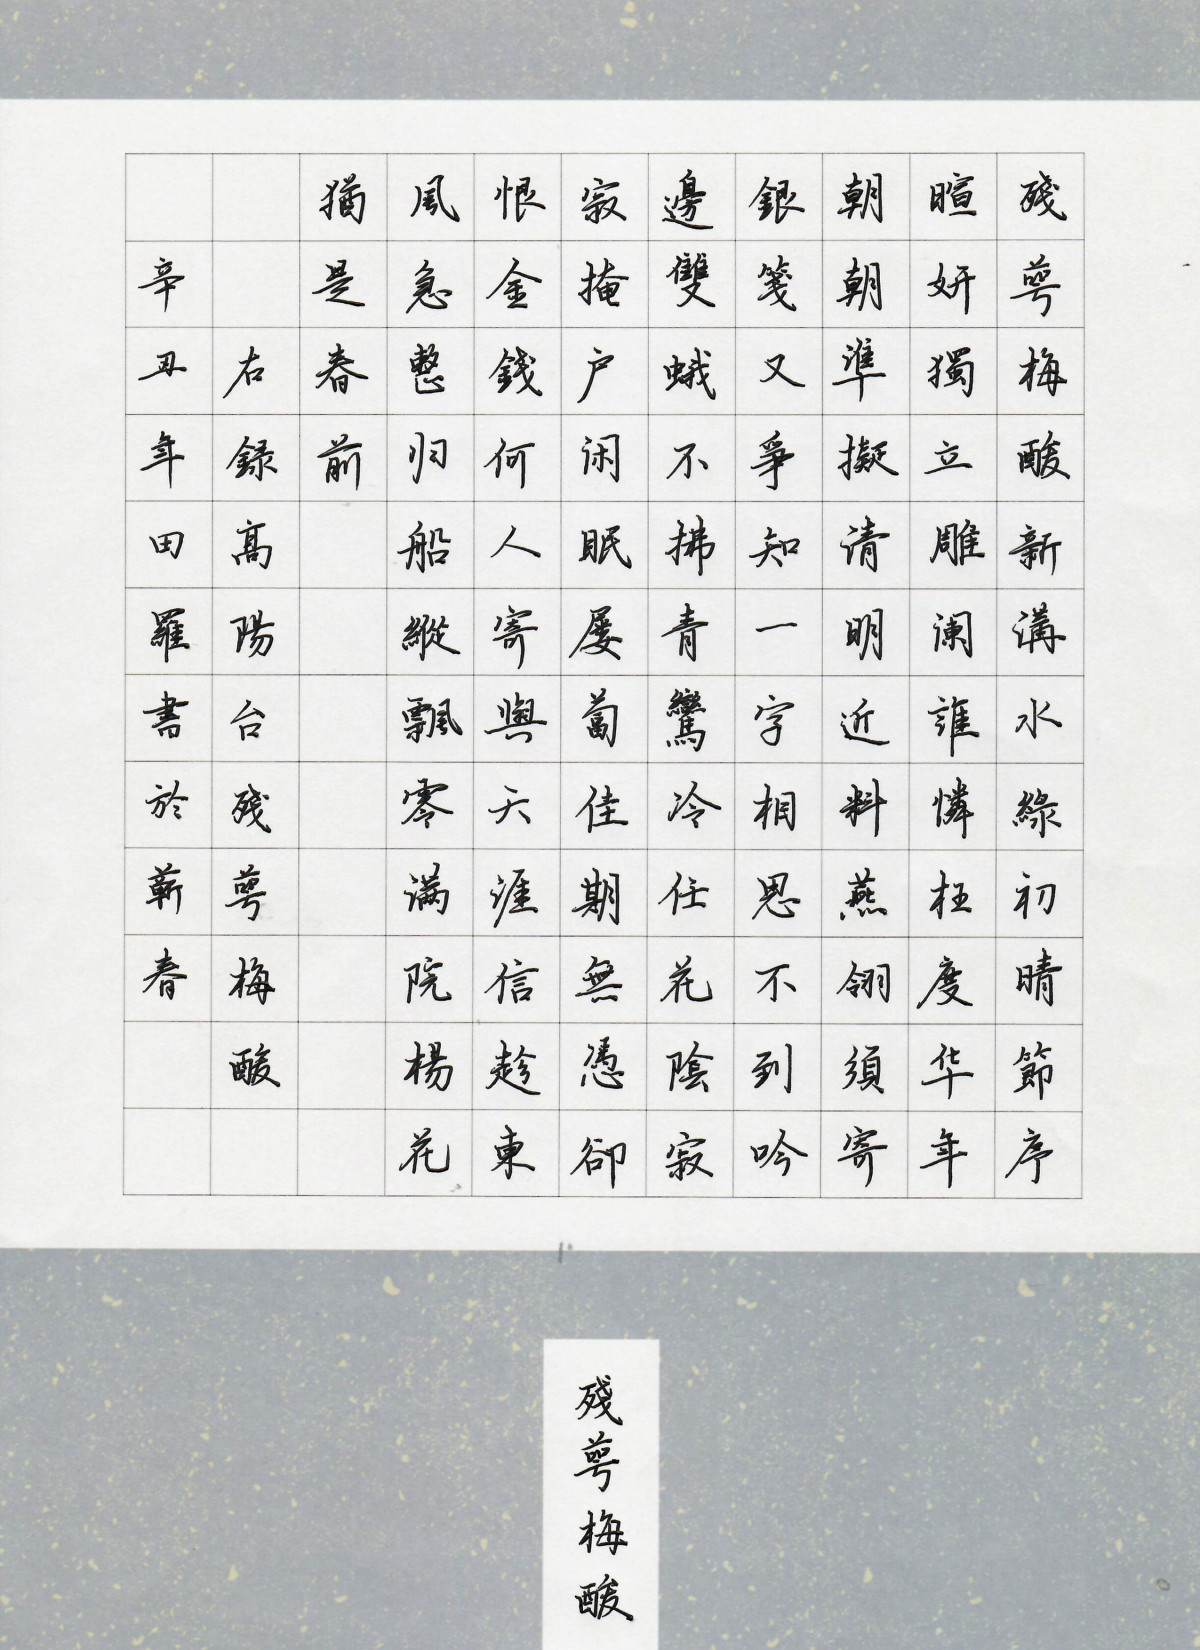 殘萼梅酸新溝水綠初晴節序
暄妍獨立雕阑誰憐枉度华年
朝朝準擬清明近料燕翎須寄
銀箋又爭知一字相思不到吟
邊雙蛾不拂青鸞冷任花陰寂
寂掩户闲眠屡蔔佳期無憑卻
恨金錢何人寄與天涯信趁東
風急整归船縱飄零满院楊花
猶是春前
右錄高陽台殘萼梅酸
辛丑年田羅書於蕲春
殘萼梅酸